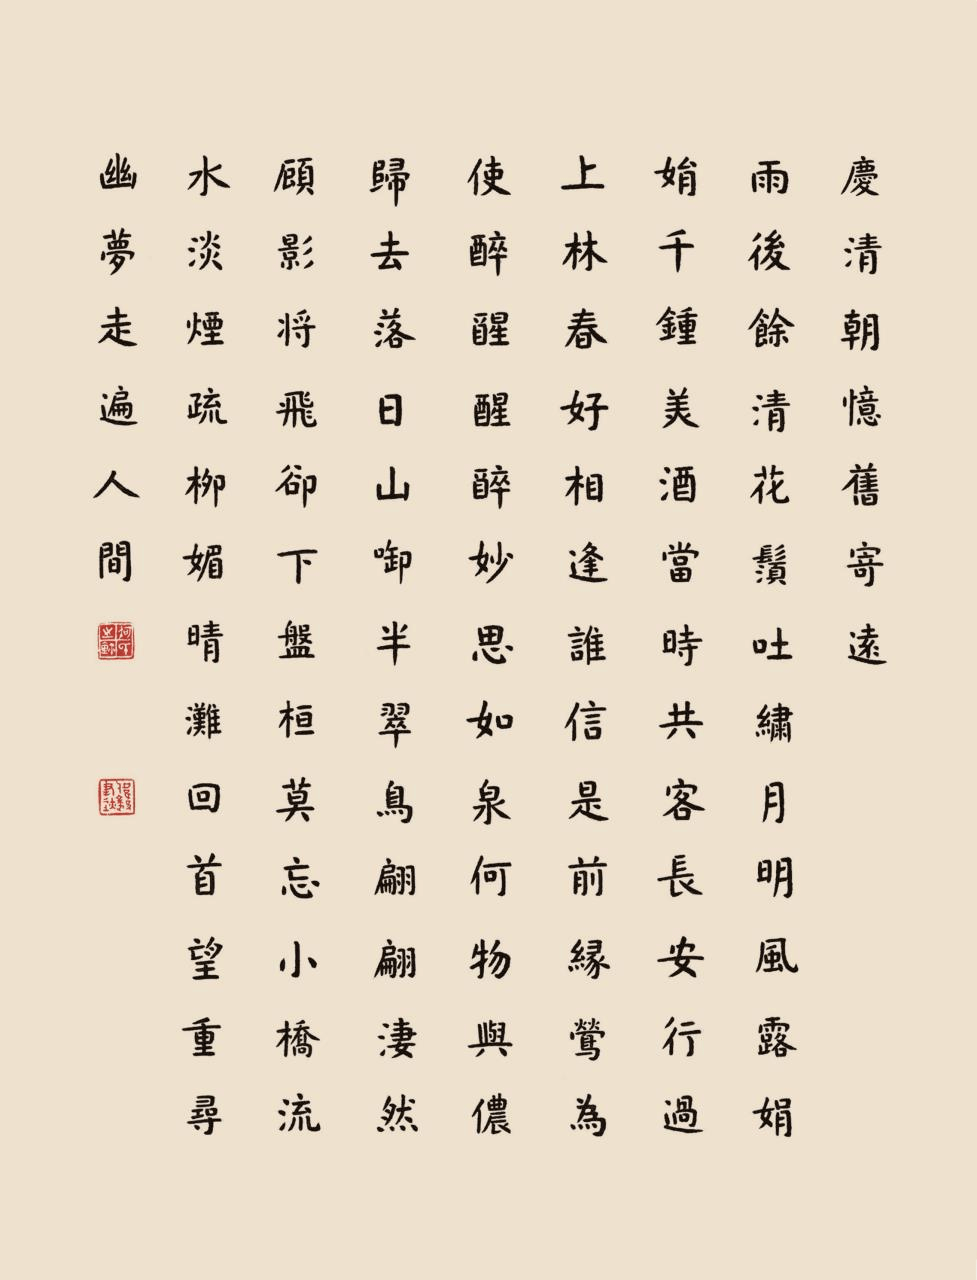 慶清朝憶舊寄遠
雨後餘清花鬚吐繡月明風露娟
娟千鍾美酒當時共客長安行過
上林春好相逢誰信是前緣鶯為
使醉醒醒醉妙思如泉何物與儂
歸去落日山啣半翠鳥翩翩淒然
顧影将飛卻下盤桓莫忘小橋流
水淡煙疏柳媚晴灘回首望重尋
幽夢走遍人間